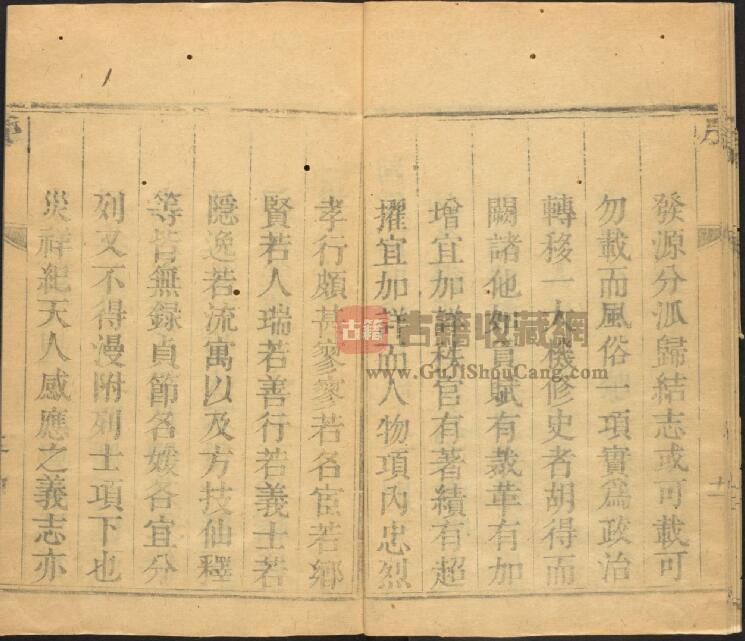 發源分派歸結志或可載可
勿載而風俗一項實爲政治
轉移一大機修史者胡得而
闕諸他如貢賦有裁革有加
增宜加詳秩官有著績有超
擢宜加詳而人物項內忠烈
孝行頗甚寥寥若名宦若鄉
賢若人瑞若善行若義士若
隱逸若流寓以及方技仙釋
等皆無録貞節名媛各宜分
列又不得漫附列士項下也
災祥紀天人感應之義志亦
序
古籍
古籍收藏網
www.GuJiShouCang.com